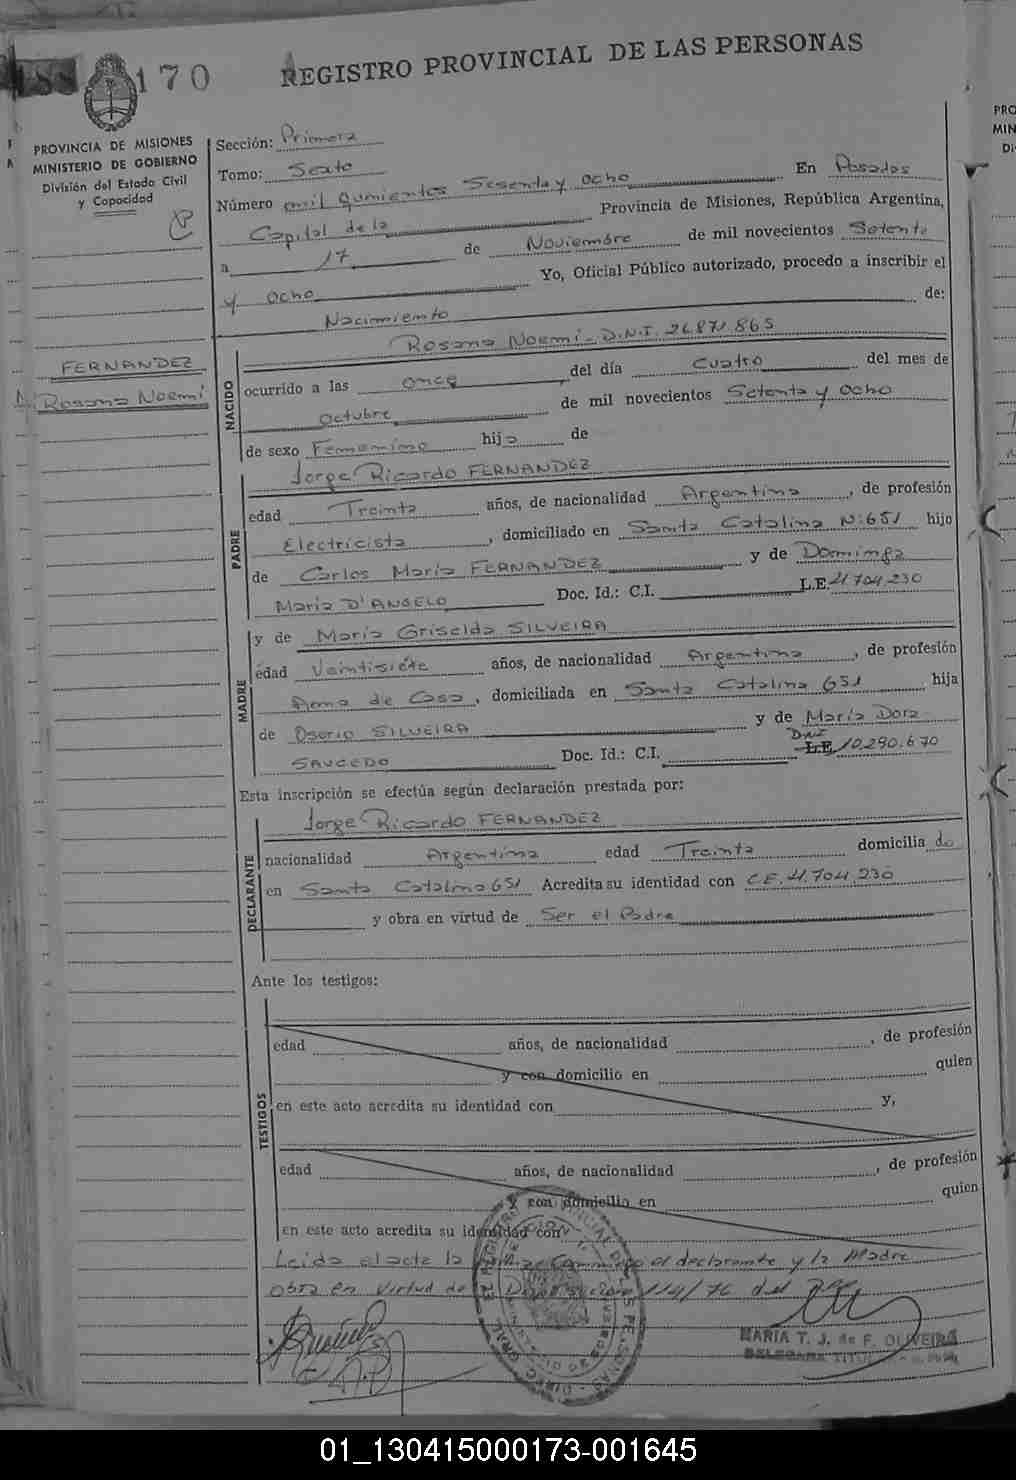 170
REGISTRO PROVINCIAL DE LAS PERSONAS
PROVINCIA DE MISIONES
MINISTERIO DE GOBIERNO
División del Estado Civil
y Capacidad
FERNANDEZ
Rosana Noemí
Sección: Primera
Tomo: Sexto
Número mil quinientos Sesenta y ocho En Posadas
Capital de la Provincia de Misiones, República Argentina,
a 17 de Noviembre de mil novecientos Setenta
y ocho Yo, Oficial Público autorizado, procedo a inscribir el
Nacimiento de:
NACIDO
Rosana Noemí - D.N.I. 26.871.865
ocurrido a las once del día cuatro del mes de
octubre de mil novecientos Setenta y ocho
de sexo Femenino hija de
PADRE
Jorge Ricardo FERNANDEZ
edad Treinta años, de nacionalidad Argentina, de profesión
Electricista, domiciliado en Santa Catalina N: 651 hijo
de Carlos María FERNANDEZ y de Dominga
María D'ANGELO Doc. Id.: C.I. L.E. 4.704.230
MADRE
y de María Griselda SILVEIRA
edad Veintisiéte años, de nacionalidad Argentina, de profesión
Ama de Casa, domiciliada en Santa Catalina 651 hija
de Osorio SILVEIRA y de María Dora
SAUCEDO Doc. Id.: C.I. L.E. DNI 10.290.670
Esta inscripción se efectúa según declaración prestada por:
DECLARANTE
Jorge Ricardo FERNANDEZ
nacionalidad Argentina edad Treinta domicilia do
en Santa Catalina 651 Acredita su identidad con C.E. 4.704.230
y obra en virtud de Ser el Padre
Ante los testigos:
TESTIGOS
edad años, de nacionalidad , de profesión
y con domicilio en quien
en este acto acredita su identidad con y,
edad años, de nacionalidad , de profesión
y con domicilio en quien
en este acto acredita su identidad con
Leída el acta la el declarante y la Madre
Obra en Virtud de Disposición 114/76 del
MARIA T. J. de F. OLIVEIRA
DELEGADA TITULAR
01_130415000173-001645